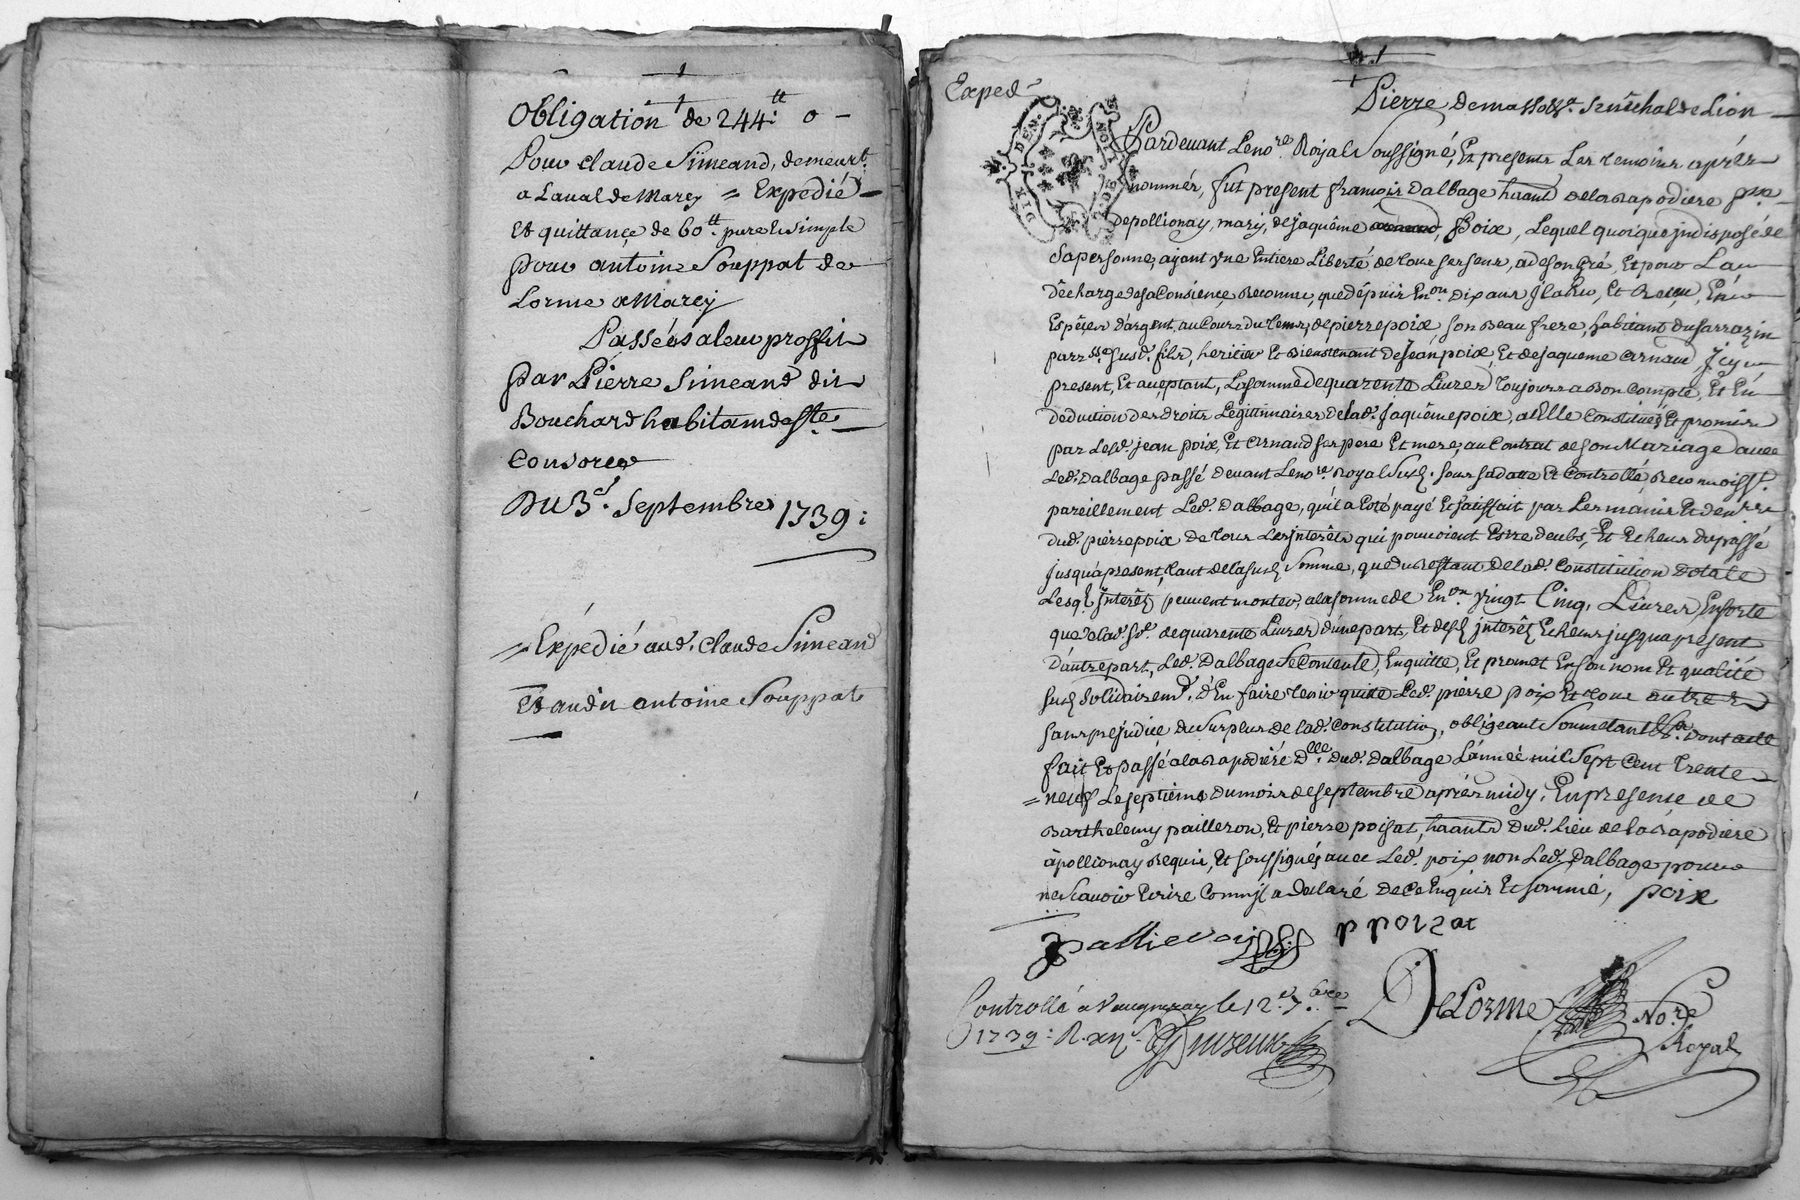 Obligation de 244.tt o -
Pour claude Simeand, demeurt.
a Laval de Marcy = Expedié
Et quittance de 60tt pure Et simple
pour antoine Souppat de
Lorme a Marcy
Passées a leur proffit
par Pierre Simeand dit
Bouchard habitant de Ste
Consorce
Du 3.e Septembre 1739:
= Expédié aud. Claude Simeand
Et audit antoine Souppat
Exped.
Pierre de Senêchal de Lion
DIX DEN. NOTRE
Pardevant Le nore. Royal Soussigné, Et presents Les temoins aprés
nommés, fut present francois Dalbage haant de la Rapodiere psse
de pollionay, mary, de jaquême poix, Lequel quoique jndisposé de
sa personne, ayant vne Entiere Liberté de tous ses sens, a de son gré, Et pour La
décharge de sa Consience, Reconnu, que dépuis Enon. dix ans jl a Eu, Et Receu, En
Espéces d'argent, au Cours du temps, de pierre poix son Beau frere, habitant du sarrazin
parsse susd. fils, heritier Et Bienstenant de jean poix, Et de jaqueme arnaud jcy
present, Et acceptant, La somme de quarente Livres toujours a Bon compte, Et En
deduction des droits Legitimaires de lad. jaquême poix, a Elle Constitués Et promis
par Led. jean poix, Et arnaud ses pere Et mere, au Contrat de son Mariage avec
Led. Dalbage passé devant Le nore Royal susd. sous sa datte Et Controllé Reconnoisst.
pareillement Led. Dalbage, qu'il a Eté payé Et satisfait par Les mains Et deniers
dud. pierre poix de tous Les jnterêts qui pouvoient Estre deubs, Et Echeus du passé
jusqu'a present, tant de la susd. Somme, que du restant de lad. Constitution dotale
Lesqls jnterêts peuvent monter, a la somme de Enon vingt Cinq. Livres, Ensorte
que de lad. se. de quarente Livres d'une part, Et desd. jnterêts Echeus jusqu'a present
d'autre part, Led. Dalbage Se Contente, En quitte, Et promet En son nom Et qualité
susd. Solidairemt. d'En faire tenir quitte Led. pierre poix Et tous autres
sans préjudice du surplus de lad. Constitution, obligeant Soumetant &a. dont acte
fait Et passé a la Rapodiére Dlle. dud. Dalbage L'année mil Sept Cent trente
= neuf Le septieme du mois de septembre aprés midy, En presence de
Barthelemy pailleron, Et pierre poisat, haants dud. lieu de la Rapodiere
á pollionay Requis, Et soussignés avec Led. poix non Led. Dalbage pour
ne Scavoir Ecrire Comm' jl a declaré de ce Enquis Et sommé, poix
pallieron p poizat
Controllé a Vaugneray le 12.e 7.bre
1739: R.
DeLorme Nore.
Royal